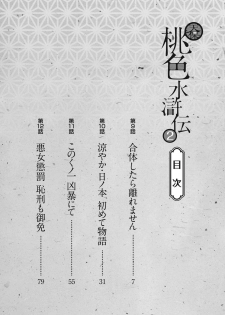 桃色水滸伝
2
目次
第9話
合体したら離れません
7
第10話
涼やか・日ノ本・初めて物語
31
第11話
このくノ一凶暴にて
55
第12話
悪女懲罰 恥刑も御免
79